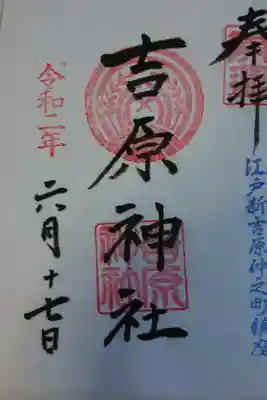 奉拝
江戸新吉原仲之町鎮座
吉原神社
令和二年
六月十七日